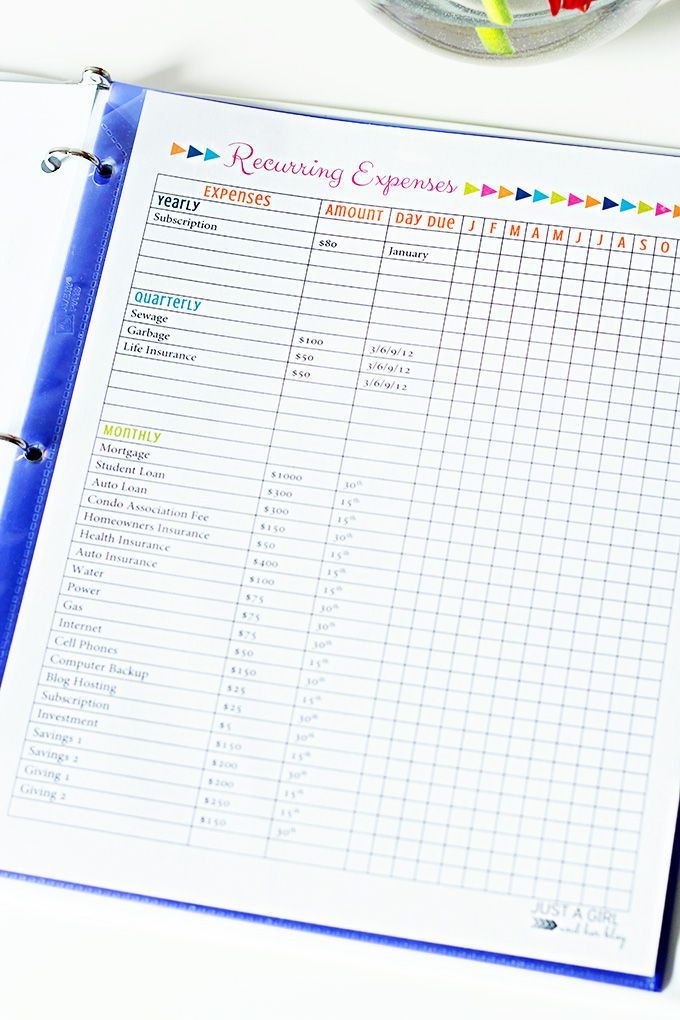 Recurring Expenses
Expenses Amount Day Due J F M A M J J A S O
Yearly
Subscription $80 January
Quarterly
Sewage $100 3/6/9/12
Garbage $50 3/6/9/12
Life Insurance $50 3/6/9/12
Monthly
Mortgage $1000 30th
Student Loan $300 15th
Auto Loan $300 15th
Condo Association Fee $150 30th
Homeowners Insurance $50 15th
Health Insurance $400 15th
Auto Insurance $100 15th
Water $75 30th
Power $75 30th
Gas $75 30th
Internet $50 15th
Cell Phones $150 15th
Computer Backup $25 15th
Blog Hosting $25 30th
Subscription $5 30th
Investment $150 15th
Savings 1 $200 30th
Savings 2 $200 15th
Giving 1 $250 15th
Giving 2 $150 30th
JUST A GIRL
and her blog